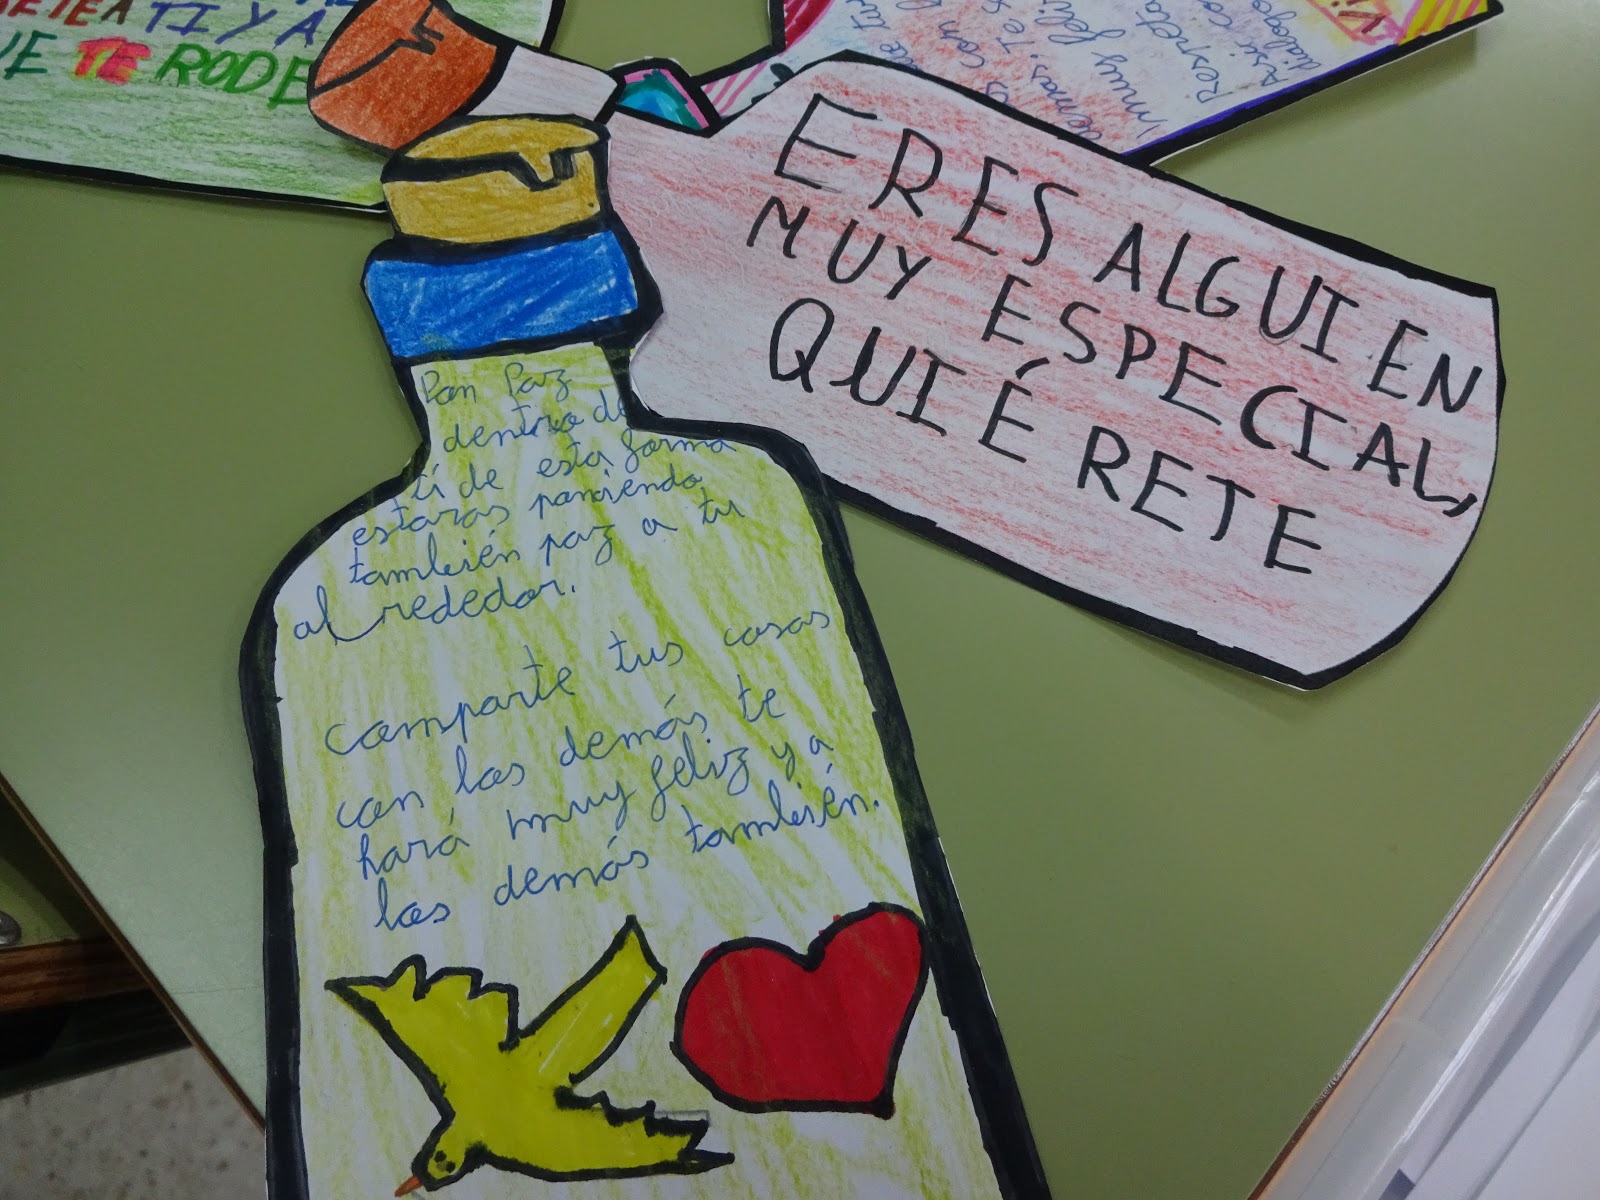 TI Y A
TE RODE
ERES ALGUIEN
MUY ESPECIAL,
QUIÉRETE
Pon Paz
dentro de
ti de esta forma
estaras poniendo
también paz a tu
al rededor.
Comparte tus cosas
con los demás te
hará muy feliz y a
los demás también.